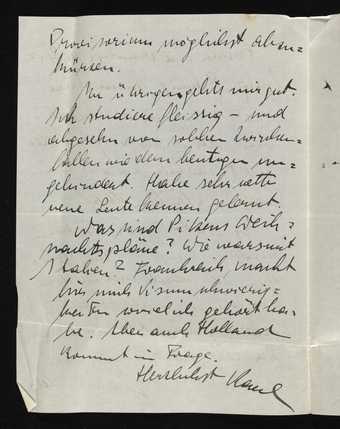 Provisorium möglichst abzu=
kürzen.
Im übrigen gehts mir gut.
Ich studiere fleissig – und
abgesehn von solchen Zwischen=
fällen wie dem heutigen un=
gehindert. Habe sehr nette
neue Leute kennen gelernt.
Was sind Pitzens Weih=
nachtspläne? Wie wärs mit
Italien? Frankreich macht
für mich Visumschwierig=
keiten soviel ich gehört ha=
be. Aber auch Holland
kommt in Frage.
Herzlichst